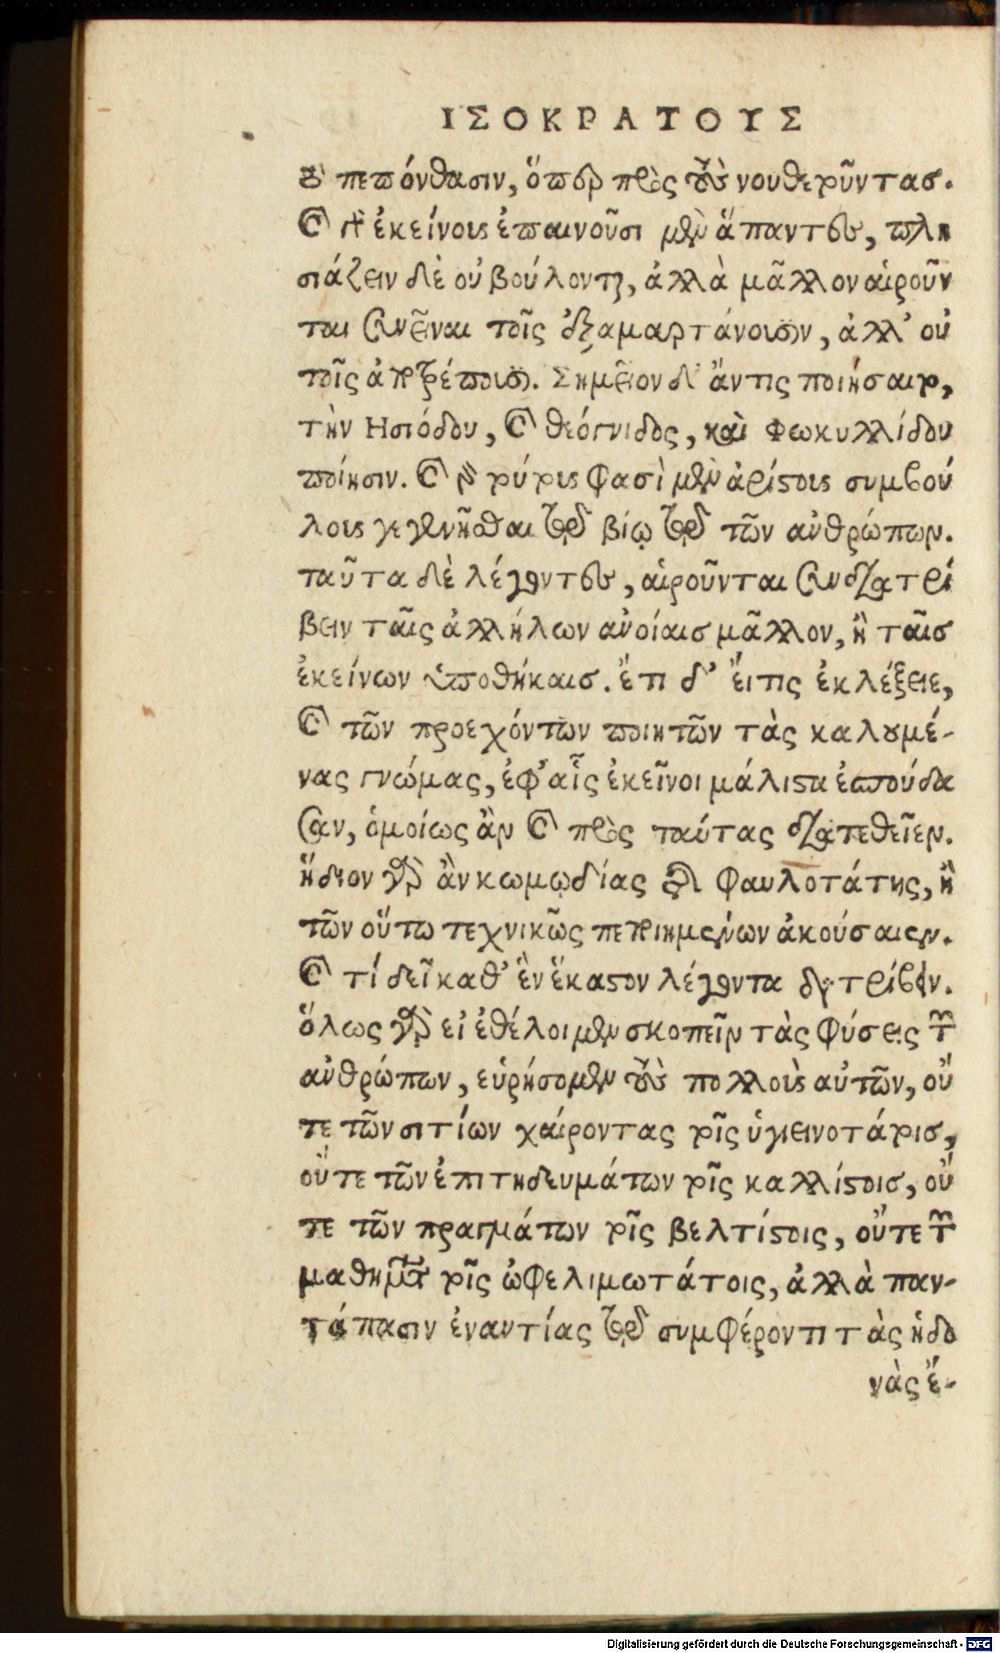 ΙΣΟΚΡΑΤΟΥΣ
ου πεπόνθασιν, ὅπερ πρὸς τοὺς νουθετοῦντας.
καὶ γὰρ ἐκείνους ἐπαινοῦσι μὲν ἅπαντες, πλη
σιάζειν δὲ οὐ βούλονται, ἀλλὰ μᾶλλον αἱροῦν
ται συνεῖναι τοῖς ἐξαμαρτάνουσιν, ἀλλ' οὐ
τοῖς ἀποτρέπουσι. Σημεῖον δ' ἄν τις ποιήσαιτο,
τὴν Ησιόδου, καὶ θεόγνιδος, καὶ Φωκυλλίδου
ποίησιν. καὶ γὰρ τούτους φασὶ μὲν ἀρίστους συμβού
λους γεγενῆσθαι τῷ βίῳ τῷ τῶν ἀνθρώπων.
ταῦτα δὲ λέγοντες, αἱροῦνται συνδιατρί
βειν ταῖς ἀλλήλων ἀνοίαις μᾶλλον, ἢ ταῖς
ἐκείνων ὑποθήκαις. ἔτι δ' εἴ τις ἐκλέξειε,
καὶ τῶν προεχόντων ποιητῶν τὰς καλουμέ-
νας γνώμας, ἐφ' αἷς ἐκεῖνοι μάλιστα ἐσπούδα
σαν, ὁμοίως ἂν καὶ πρὸς ταύτας διατεθεῖεν.
ἥδιον γὰρ ἂν κωμῳδίας τῆς φαυλοτάτης, ἢ
τῶν οὕτω τεχνικῶς πεποιημένων ἀκούσαιεν.
καὶ τί δεῖ καθ' ἓν ἕκαστον λέγοντα διατρίβειν.
ὅλως γὰρ εἰ ἐθέλοιμεν σκοπεῖν τὰς φύσεις τῶν
ἀνθρώπων, εὑρήσομεν τοὺς πολλοὺς αὐτῶν, οὔ
τε τῶν σιτίων χαίροντας τοῖς ὑγιεινοτάτοις,
οὔτε τῶν ἐπιτηδευμάτων τοῖς καλλίστοις, οὔ
τε τῶν πραγμάτων τοῖς βελτίστοις, οὔτε τῶν
μαθημάτων τοῖς ὠφελιμωτάτοις, ἀλλὰ παν-
τάπασιν ἐναντίας τῷ συμφέροντι τὰς ἡδο
νὰς ἔ-
Digitalisierung gefördert durch die Deutsche Forschungsgemeinschaft - DFG